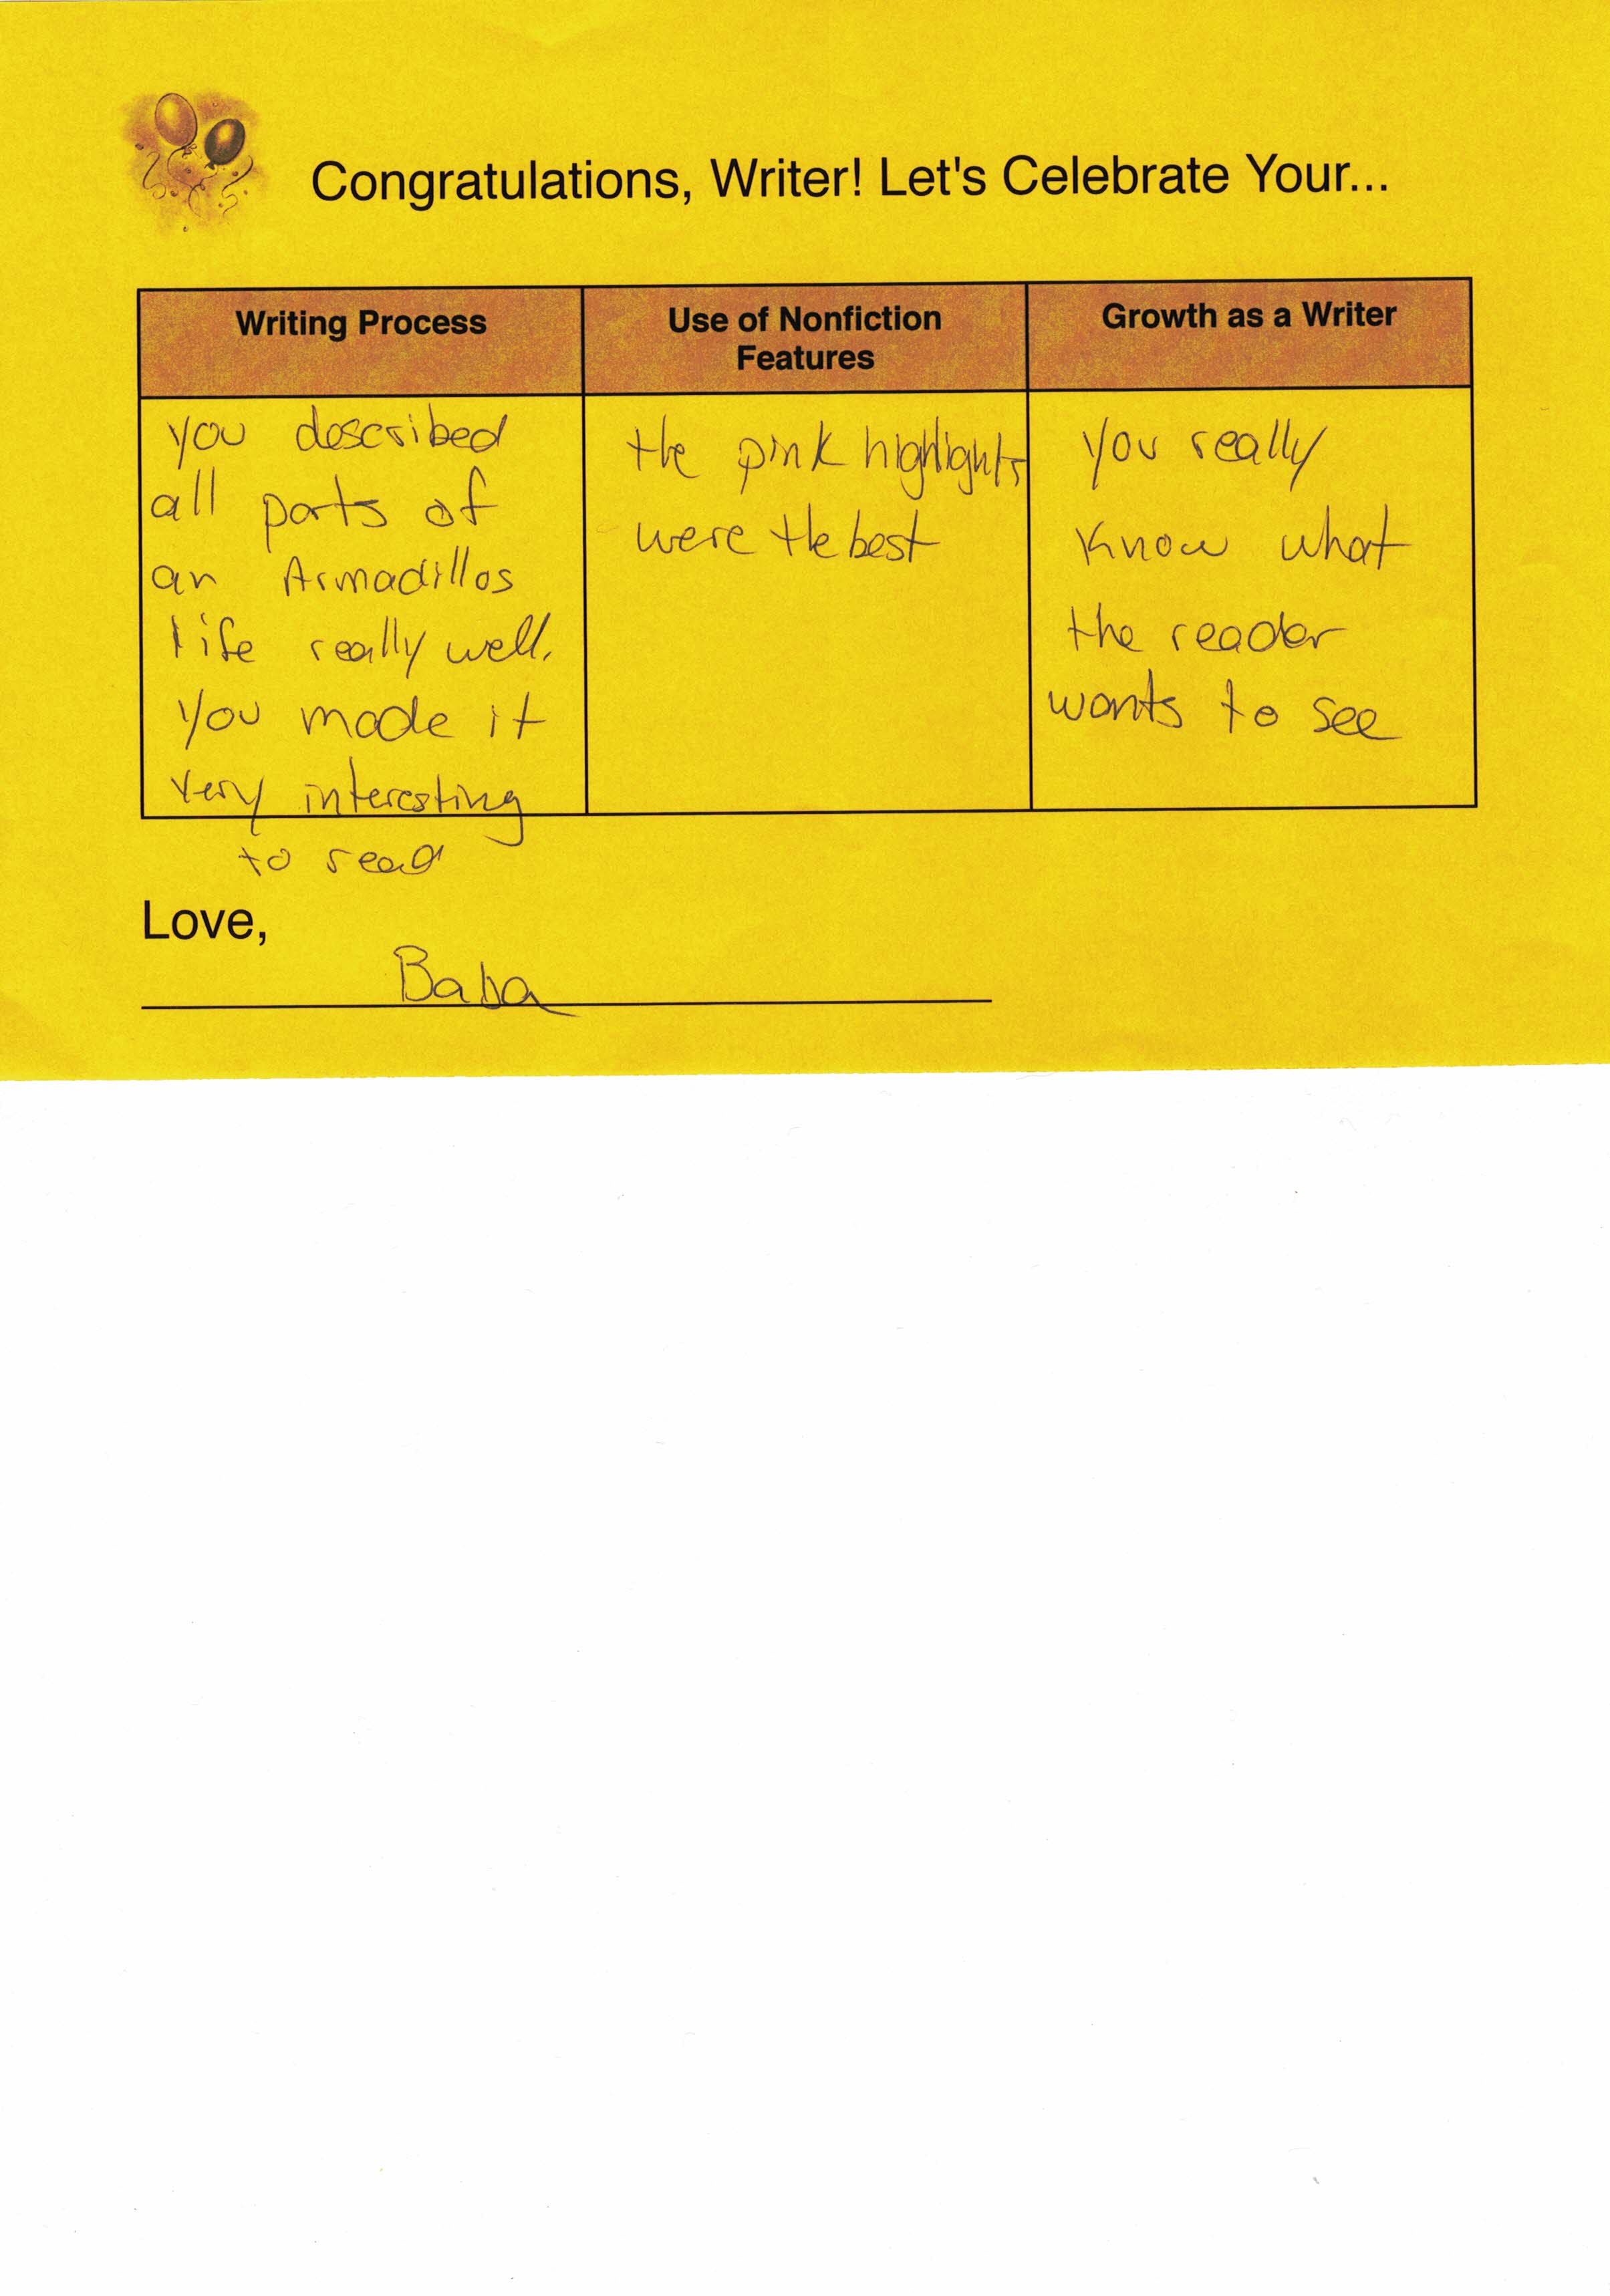 Congratulations, Writer! Let's Celebrate Your...
Writing Process
Use of Nonfiction
Features
Growth as a Writer
you described
all parts of
an Armadillos
life really well.
You made it
very interesting
to read
the pink highlights
were the best
you really
know what
the reader
wants to see
Love,
Baba